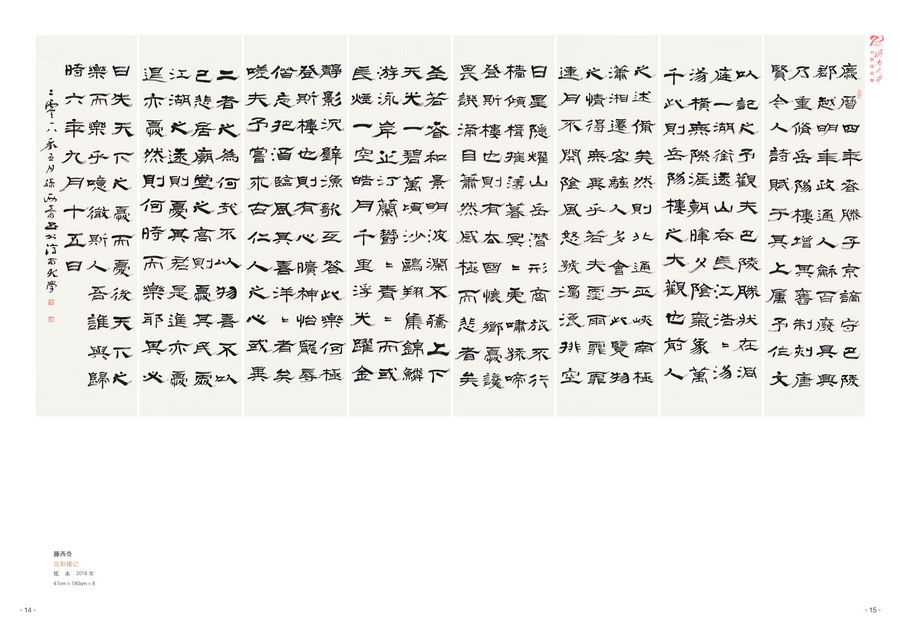 慶曆四年春滕子京謫守巴陵
郡越明年政通人龢百廢具興
乃重脩岳陽樓增其舊制刻唐
賢今人詩賦于其上屬予作文
以記之予觀夫巴陵勝狀在洞
庭一湖銜遠山吞長江浩〻湯
湯橫無際涯朝暉夕陰氣象萬
千此則岳陽樓之大觀也前人
之述備矣然則北通巫峽南極
瀟湘遷客騷人多會于此覽物
之情得無異乎若夫霪雨霏霏
連月不開陰風怒號濁浪排空
日星隱耀山岳潛形商旅不行
檣傾楫摧薄暮冥〻虎嘯猿啼
登斯樓也則有去國懷鄉憂讒
畏譏滿目蕭然感極而悲者矣
至若春和景明波瀾不驚上下
天光一碧萬頃沙鷗翔集錦鱗
游泳岸芷汀蘭鬱〻青〻而或
長煙一空皓月千里浮光躍金
靜影沉璧漁歌互答此樂何極
登斯樓也則有心曠神怡寵辱
偕忘把酒臨風其喜洋〻者矣
嗟夫予嘗求古仁人之心或異
二者之為何哉不以物喜不以
己悲居廟堂之高則憂其民處
江湖之遠則憂其君是進亦憂
退亦憂然則何時而樂耶其必
曰先天下之憂而憂後天下之
樂而樂乎噫微斯人吾誰與歸
時六年九月十五日
二零一八年五月滕西奇書於濟南大學
滕西奇
岳阳楼记
纸 本 2018 年
47cm×180cm×8
- 14 -
- 15 -